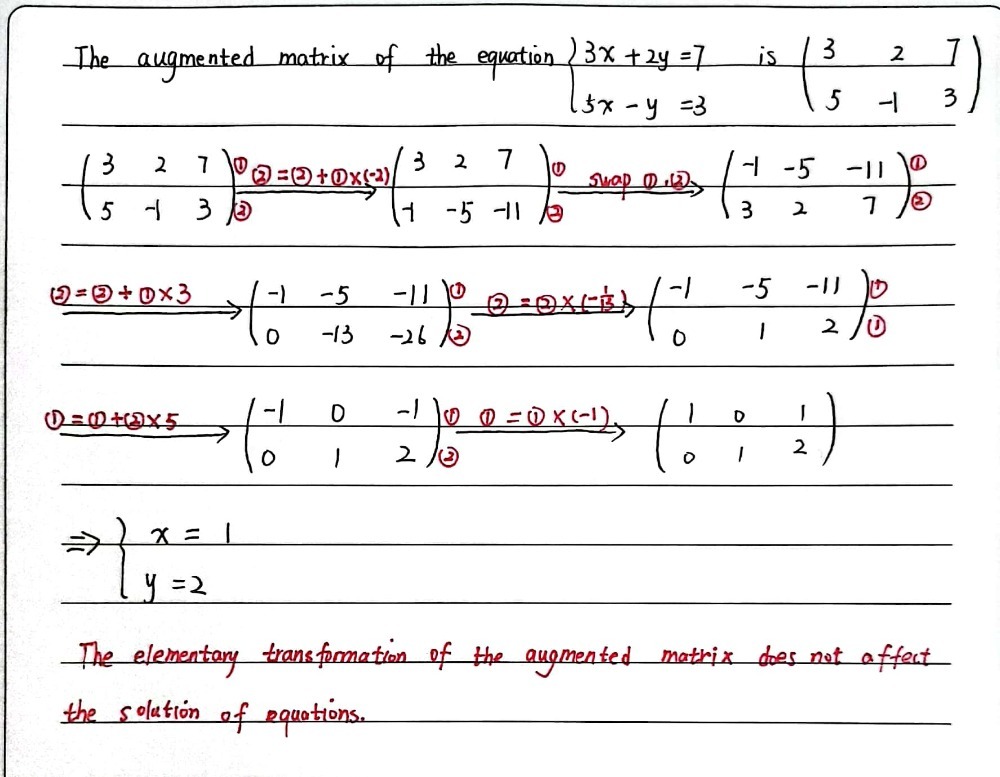 The augmented matrix of the equation { 3x + 2y = 7 is ( 3 2 7
5x - y = 3 5 -1 3 )
( 3 2 7 ) ① ②=②+①×(-2) ( 3 2 7 ) ① swap ①,② ( -1 -5 -11 ) ①
( 5 -1 3 ) ② ( -1 -5 -11 ) ② ( 3 2 7 ) ②
②=②+①×3 ( -1 -5 -11 ) ① ②=②×(-1/13) ( -1 -5 -11 ) ①
( 0 -13 -26 ) ② ( 0 1 2 ) ①
①=①+②×5 ( -1 0 -1 ) ① ①=①×(-1) ( 1 0 1 )
( 0 1 2 ) ② ( 0 1 2 )
⇒ { x = 1
y = 2
The elementary transformation of the augmented matrix does not affect
the solution of equations.